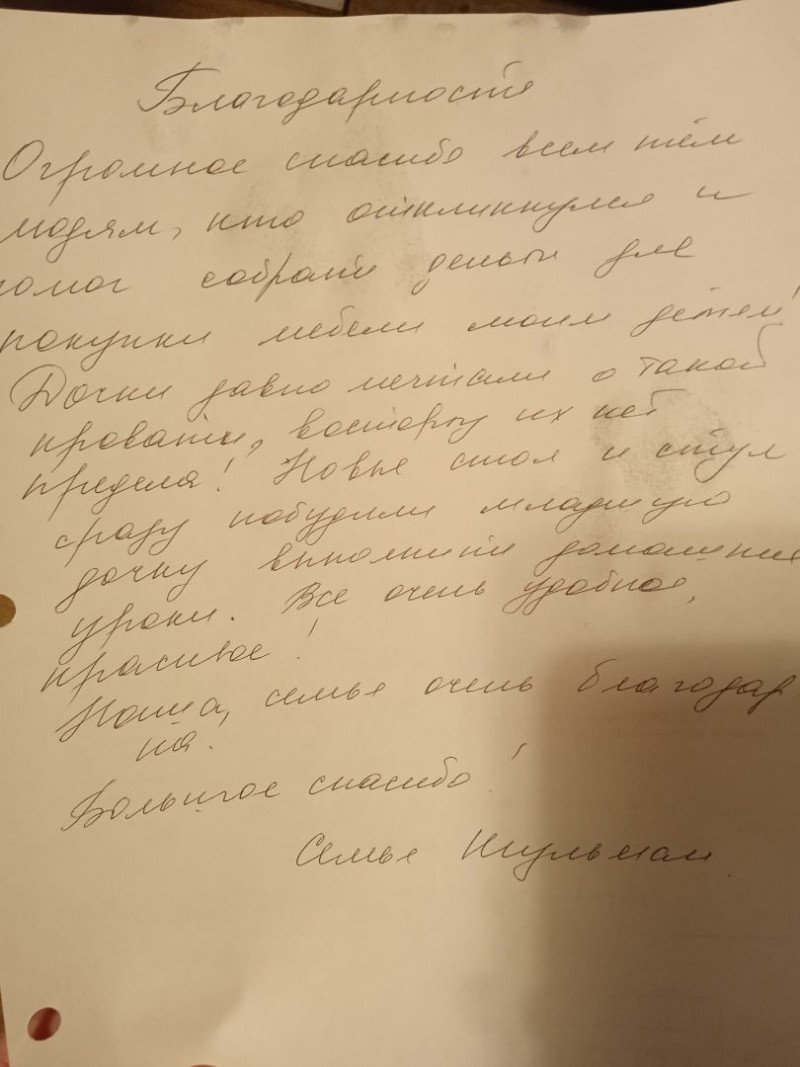 Благодарность
Огромное спасибо всем тем
людям, кто откликнулся и
помог собрать деньги для
покупки мебели моим детей!
Дочки давно мечтали о такой
кровати, восторгу их нет
предела! Новые стол и стул
сразу побудили младшую
дочку выполнить домашние
уроки. Все очень удобное,
красивое!
Наша, семья очень благодар
на.
Большое спасибо!
Семья